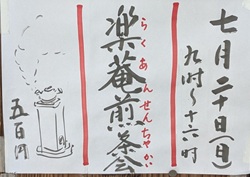 七月二十日(日)
九时~十六时
楽菴煎茶会
らくあんせんちゃかい
五百円